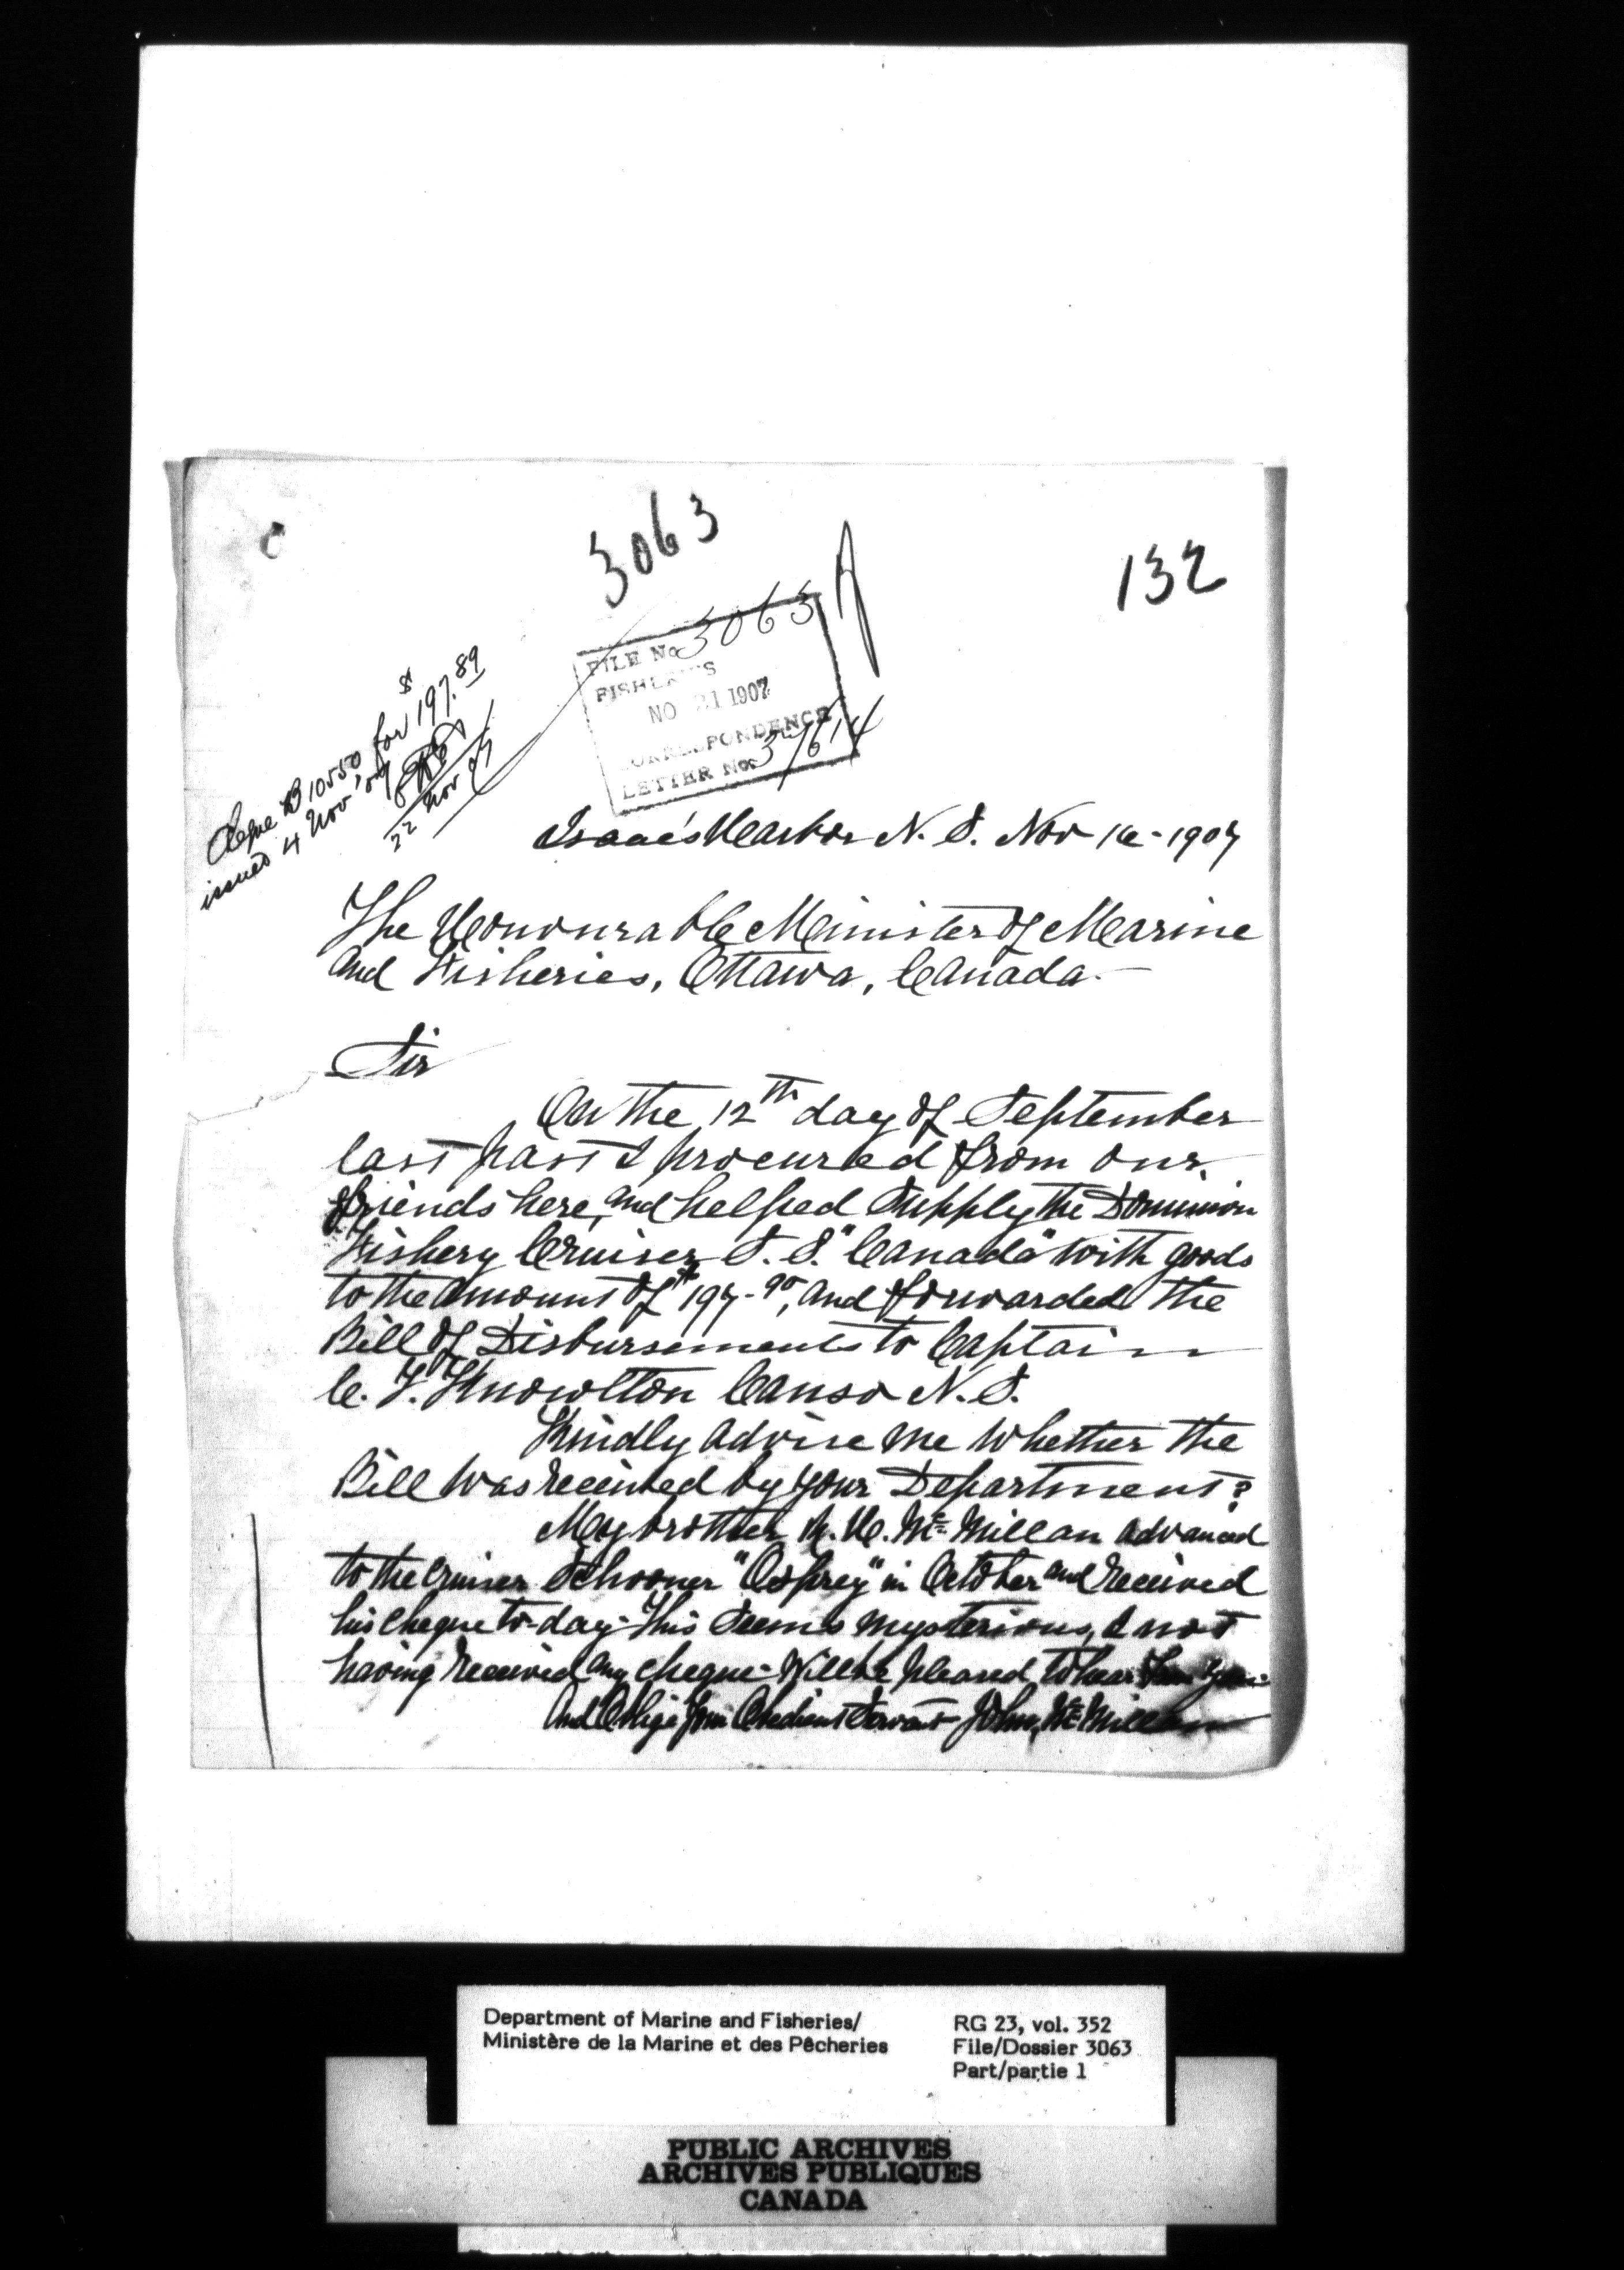 3063
132
FILE No. 3063
FISHERIES
NO 21 1907
CORRESPONDENCE
LETTER No.
Cheque B 10550 for $197.89
issued 4 Nov '07
22 Nov 07
Isaac's Harbor N. S. Nov 16 - 1907
The Honourable Minister of Marine
and Fisheries, Ottawa, Canada.—
Sir
On the 12th day of September
last past I procured from our
friends here, and helped supply the Dominion
Fishery Cruiser S. S. "Canada" with goods
to the amount of $197-90, and forwarded the
Bill of Disbursements to Captain
C. T. Knowlton Canso N. S.
Kindly advise me whether the
Bill was received by your Department?
My brother H. Mc.Millan advanced
to the Cruiser Schooner "Osprey" in October and received
his cheque to-day - This seems mysterious, I not
having received any cheque - Will be pleased to hear from you -
And Oblige Your Obedient Servant John Mc.Millan
Department of Marine and Fisheries/
Ministère de la Marine et des Pêcheries
RG 23, vol. 352
File/Dossier 3063
Part/partie 1
PUBLIC ARCHIVES
ARCHIVES PUBLIQUES
CANADA